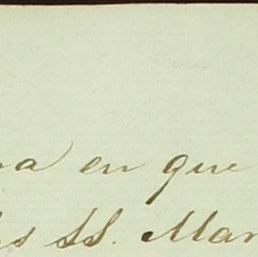 a en que
is SS. Man